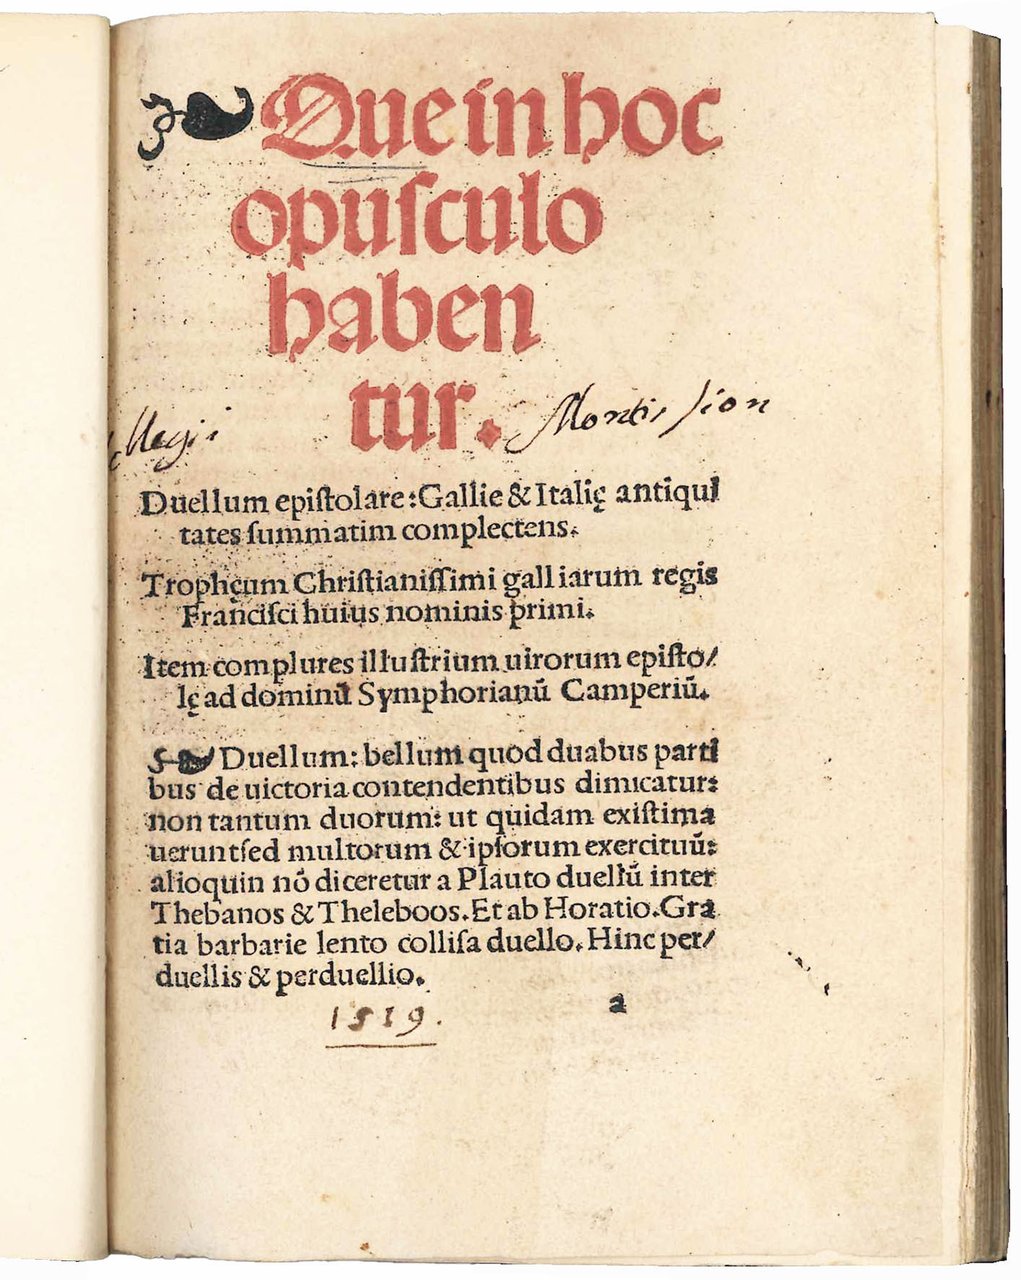 Que in hoc
opuſculo
haben
tur.
Montis ſion
Duellum epiſtolare: Gallie & Italię antiqui
tates ſummatim complectens.
Trophęum Chriſtianiſſimi galliarum regis
Franciſci huius nominis primi.
Item complures illuſtrium uirorum epiſto/
lę ad dominū Symphorianū Camperiū.
Duellum: bellum quod duabus parti
bus de uictoria contendentibus dimicatur:
non tantum duorum: ut quidam exiſtima
uerunt ſed multorum & ipſorum exercituū:
alioquin nō diceretur a Plauto duellū inter
Thebanos & Theleboos. Et ab Horatio. Gra
tia barbarie lento colliſa duello. Hinc per/
duellis & perduellio.
a
1519.